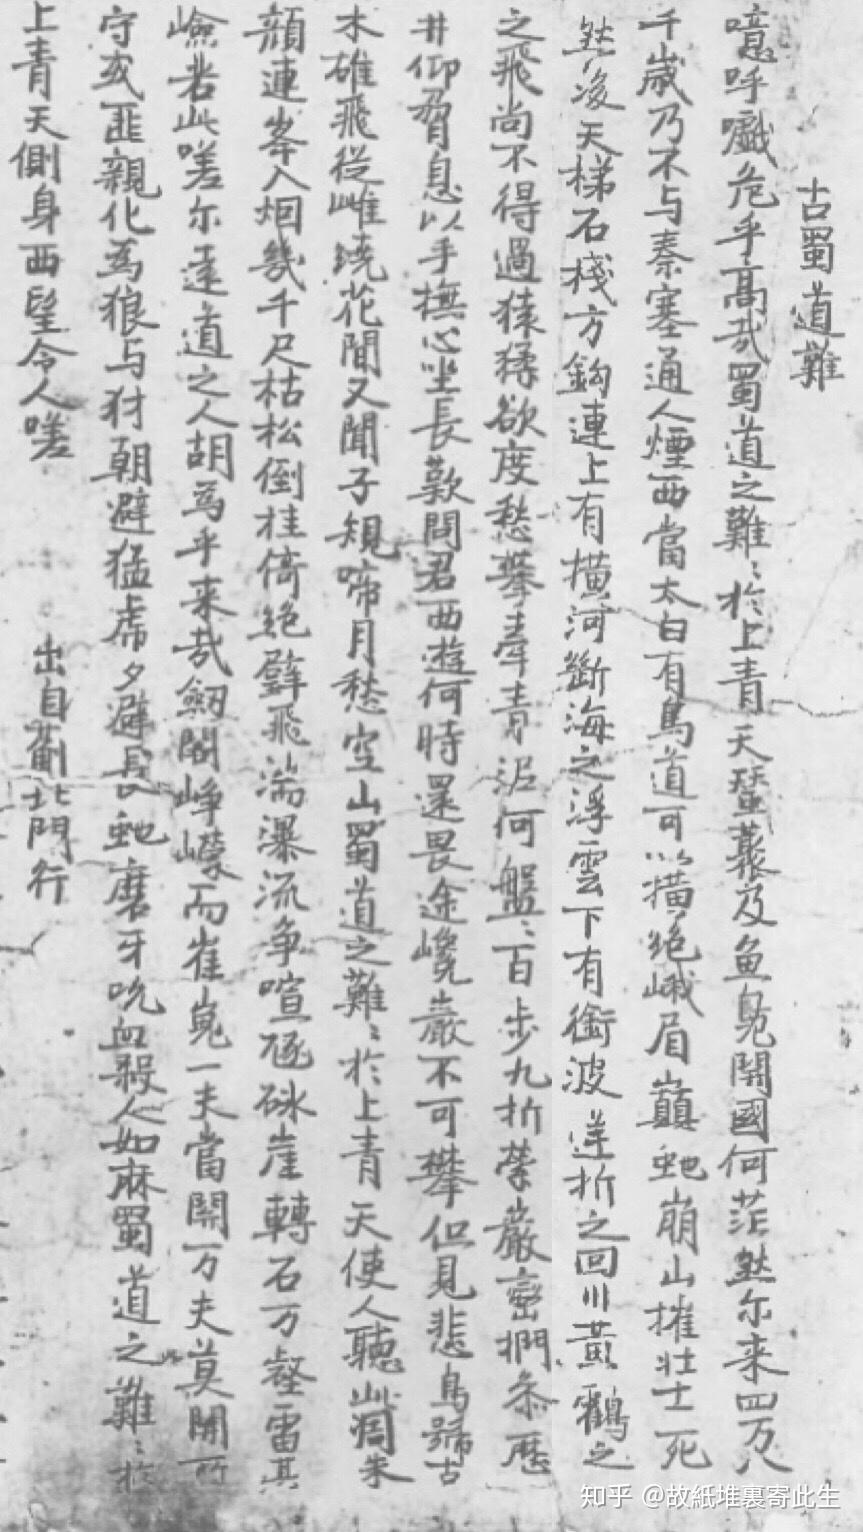 古蜀道難
噫呼嚱危乎高哉蜀道之難〻於上青天蚕藂及魚鳧開國何茫然尔来四万八
千歲乃不与秦塞通人煙西當太白有鳥道可以橫絕峨眉巔虵崩山摧壯士死
然後天梯石棧方鉤連上有橫河斷海之浮雲下有衝波逆折之回川黃鶴之
之飛尚不得過猿猱欲度愁攀牽青泥何盤〻百步九折縈巖巒捫叅歷
井仰脅息以手撫心坐長歎問君西遊何時還畏途巉巖不可攀但見悲鳥號古
木雄飛從雌繞花間又聞子規啼月愁空山蜀道之難〻於上青天使人聽此凋朱
顏連峯入烟幾千尺枯松倒挂倚絕壁飛湍瀑流争喧豗砅崖轉石万壑雷其
嶮若此嗟尔遠道之人胡為乎来哉劒閣崢嶸而崔嵬一夫當開万夫莫開所
守或匪親化為狼与犲朝避猛虎夕避長虵磨牙吮血殺人如麻蜀道之難〻於
上青天側身西望令人嗟
出自薊北門行
知乎 @故紙堆裏寄此生